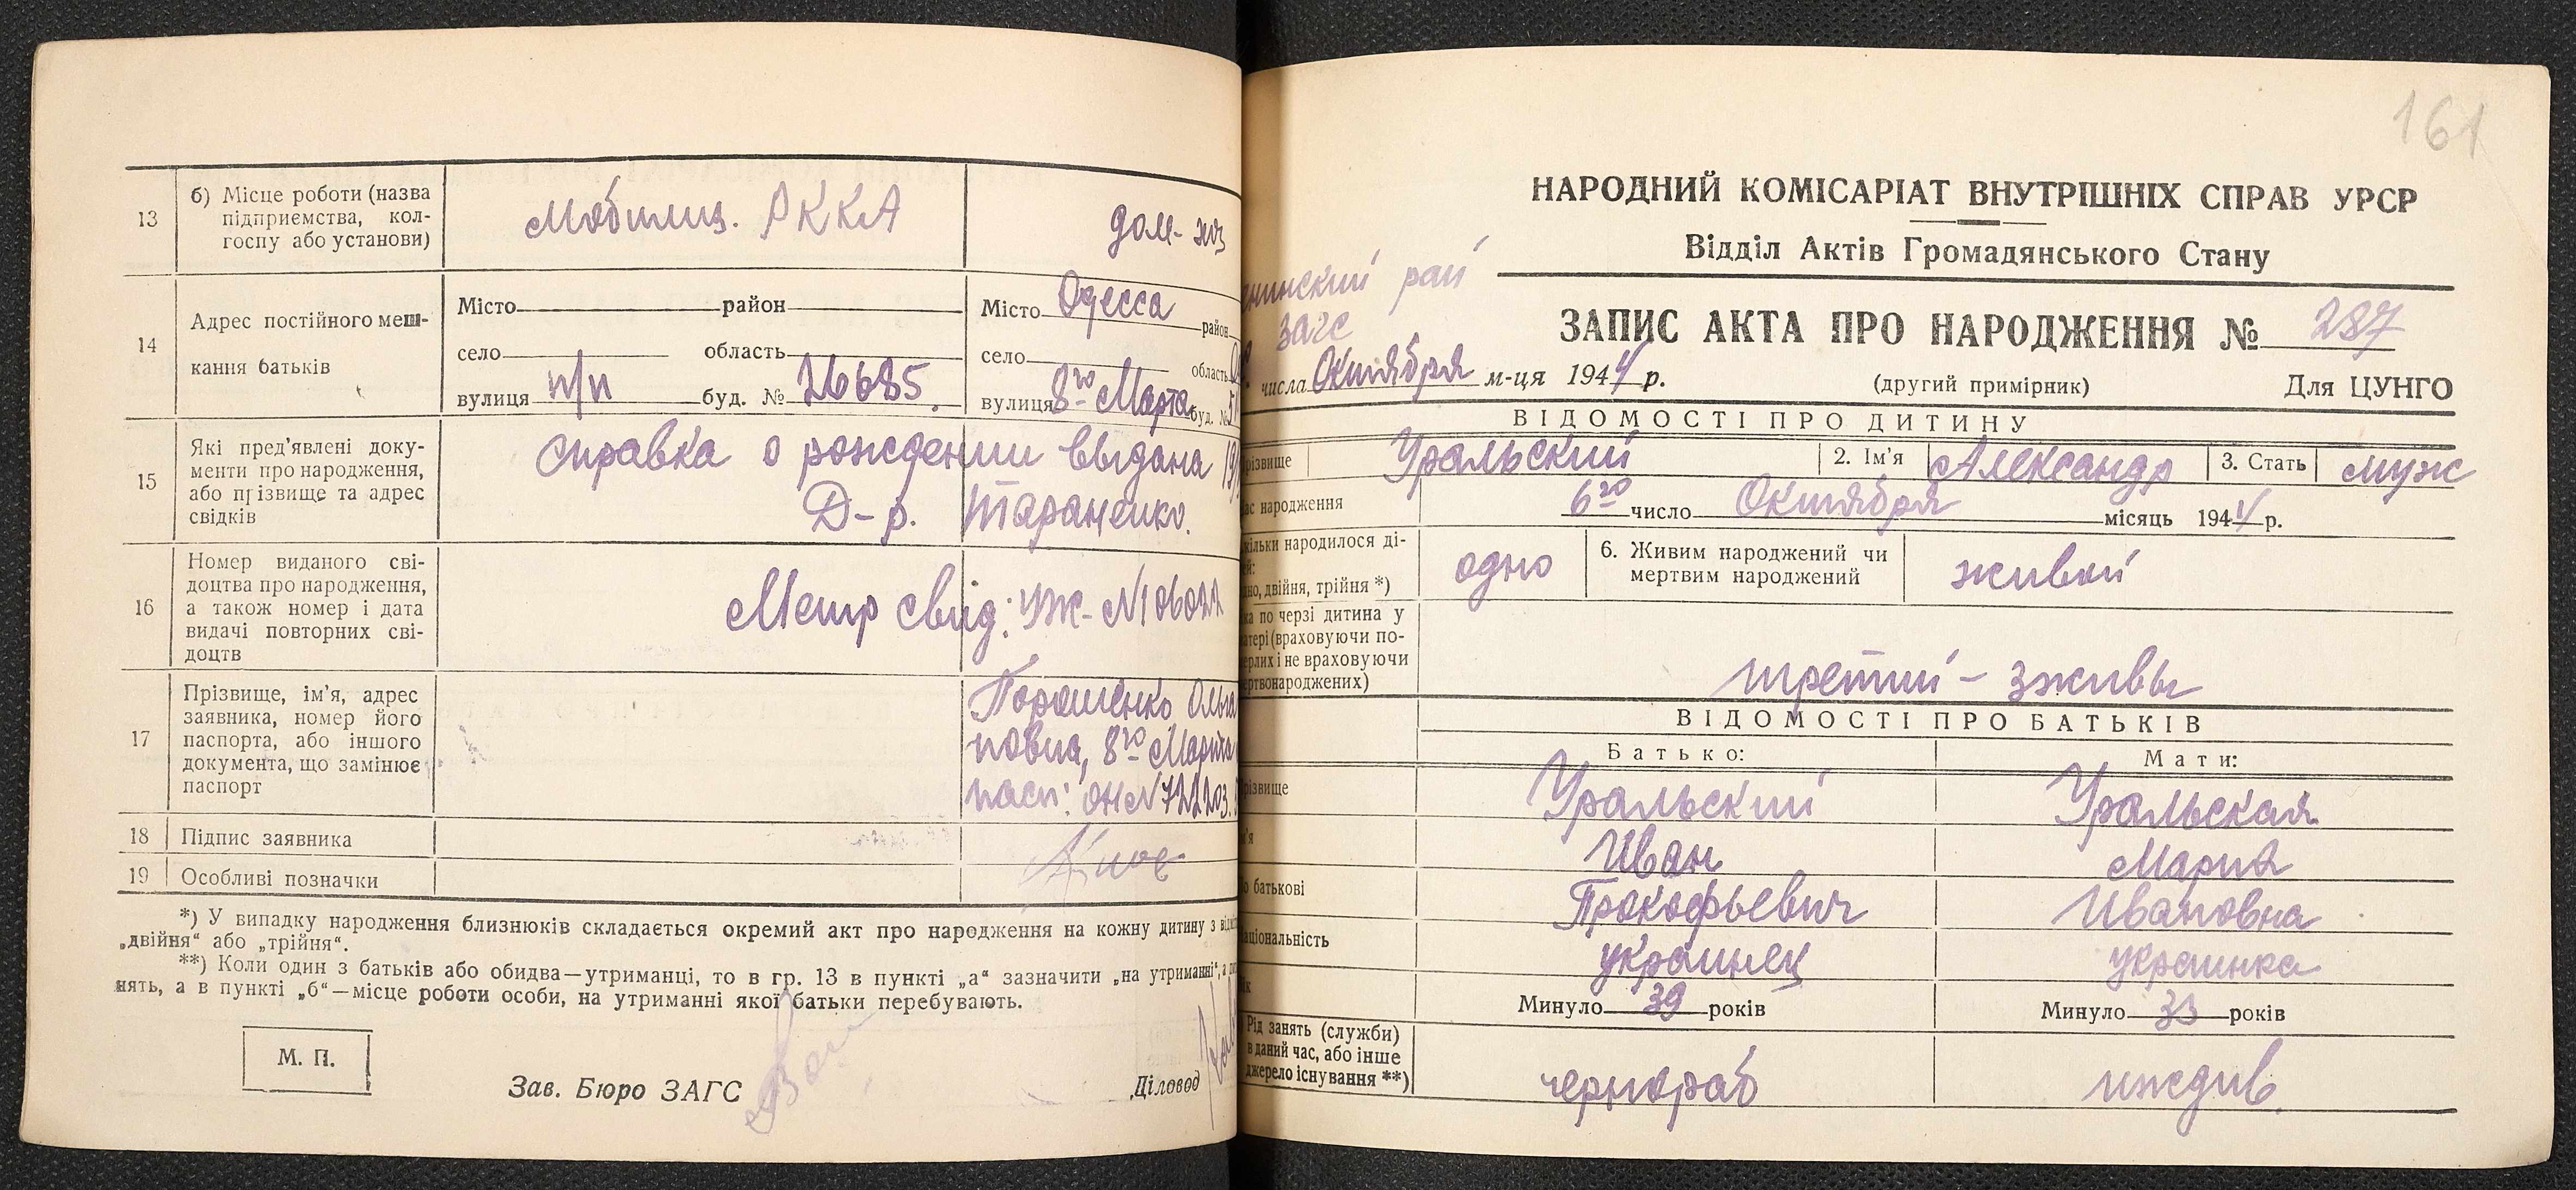 13
б) Місце роботи (назва
підприємства, кол-
госпу або установи)
Мобилиз. РККА
дом-хоз
14
Адрес постійного меш-
кання батьків
Місто район
село область
вулиця п/п буд. № 26685.
Місто Одесса район
село область
вулиця 8го Марта буд. №
15
Які пред'явлені доку-
менти про народження,
або прізвище та адрес
свідків
Справка о рождении выдана
Д-р. Тараненко.
16
Номер виданого сві-
доцтва про народження,
а також номер і дата
видачі повторних сві-
доцтв
Метр свид: УЖ-№106022
17
Прізвище, ім'я, адрес
заявника, номер його
паспорта, або іншого
документа, що замінює
паспорт
Порошенко Ольга
повна, 8го Марта
пасп: ОН№722203.
18
Підпис заявника
19
Особливі позначки
*) У випадку народження близнюків складається окремий акт про народження на кожну дитину з
„двійня“ або „трійня“.
**) Коли один з батьків або обидва—утриманці, то в гр. 13 в пункті „а“ зазначити „на утриманні“, а
нять, а в пункті „б“—місце роботи особи, на утриманні якої батьки перебувають.
М. П.
Зав. Бюро ЗАГС
Діловод
161
НАРОДНИЙ КОМІСАРІАТ ВНУТРІШНІХ СПРАВ УРСР
Відділ Актів Громадянського Стану
енинский рай
загс
ЗАПИС АКТА ПРО НАРОДЖЕННЯ № 287
числа Октября м-ця 1944 р.
(другий примірник)
Для ЦУНГО
ВІДОМОСТІ ПРО ДИТИНУ
різвище Уральский 2. Ім'я Александр 3. Стать муж
ас народження 6го число Октября місяць 1944 р.
кільки народилося ді-
ей:
дно, двійня, трійня *)
одно
6. Живим народжений чи
мертвим народжений
живой
ка по черзі дитина у
атері (враховуючи по-
ерлих і не враховуючи
ертвонароджених)
третий - 3живы
ВІДОМОСТІ ПРО БАТЬКІВ
Батько: Мати:
різвище Уральский Уральская
м'я Иван Мария
о батькові Прокофьевич Ивановна
аціональність украинец украинка
ік Минуло 39 років Минуло 33 років
Рід занять (служби)
в даний час, або інше
джерело існування **)
чернораб
иждив.